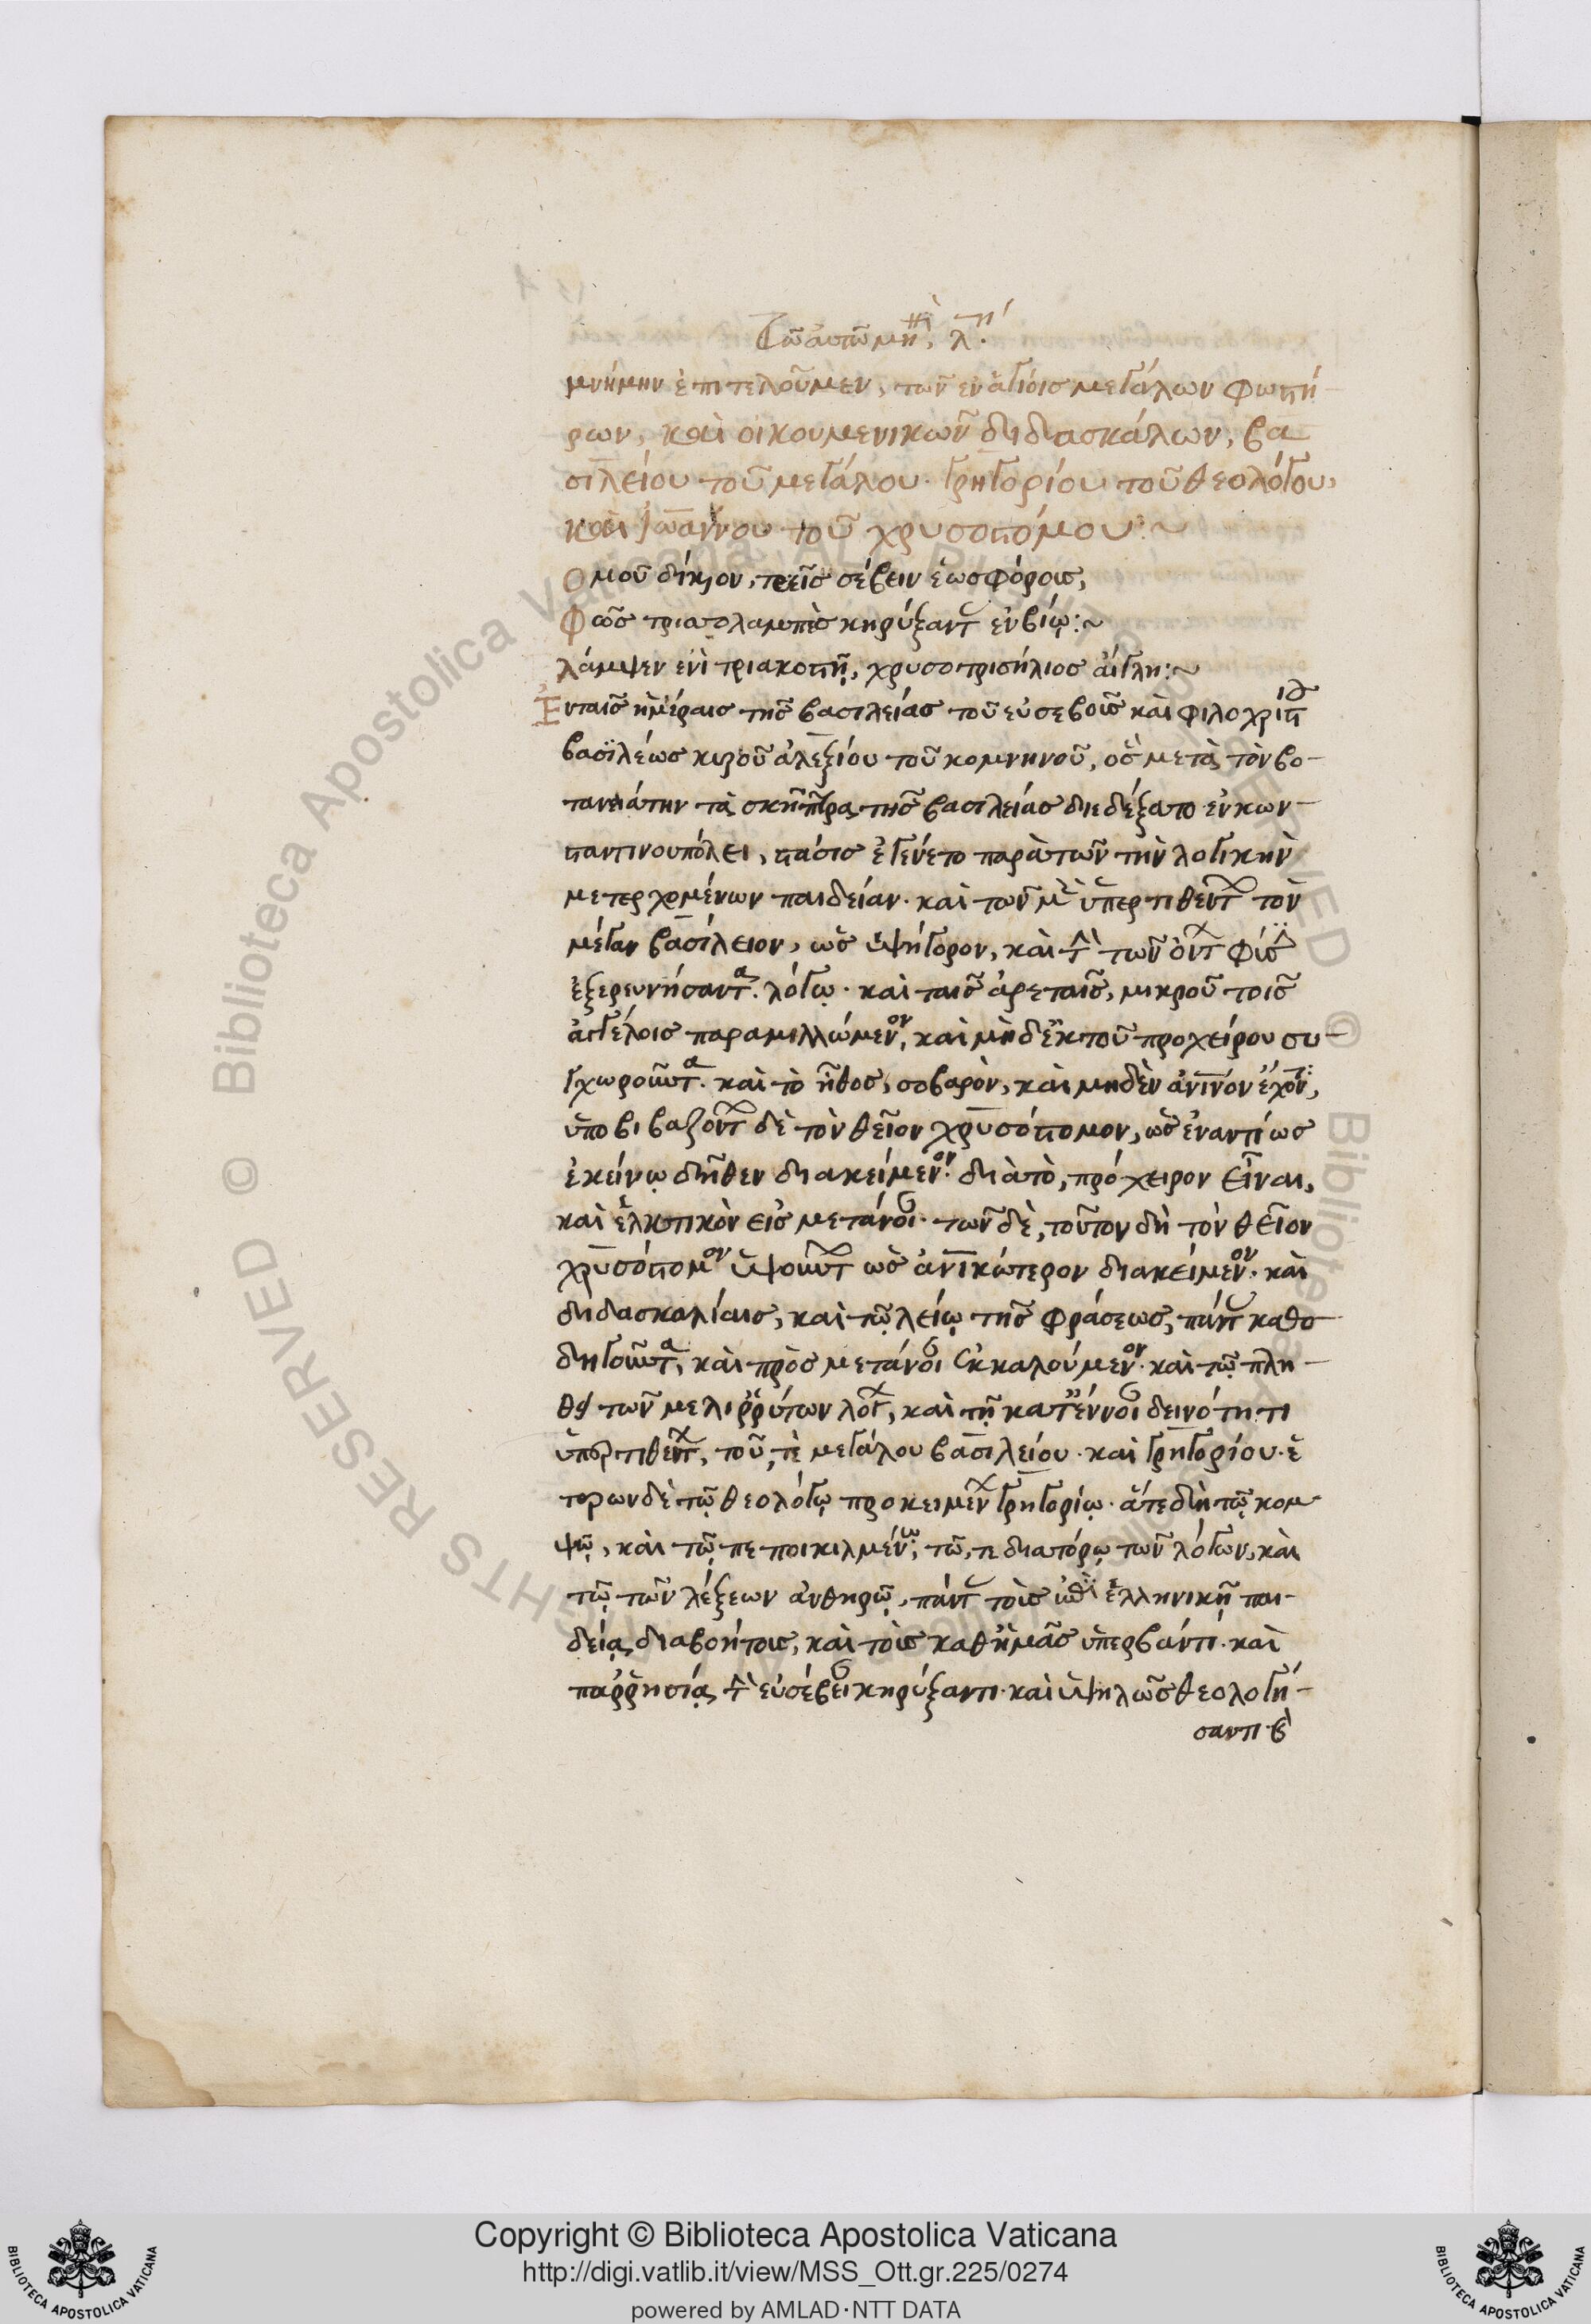 Τῶ αυτῶ μηνὶ, λ´.
μνήμην ἐπιτελοῦμεν, τῶν ἐν ἁγίοις μεγάλων φωστή-
ρων, καὶ οἰκουμενικῶν διδασκάλων, βα
σιλείου τοῦ μεγάλου· γρηγορίου τοῦ θεολόγου,
καὶ ἰωάννου τοῦ χρυσοστόμου:~
Ὁμοῦ δίκαιον, τρεῖς σέβειν ἑωσφόρους,
Φῶς τρισσολαμπὲς κηρύξαντ ἐν βίῳ:~
λάμψεν ἐνὶ τριακοστῇ, χρυσοτρισήλιος αἴγλη:~
Ἐν ταῖς ἡμέραις τῆς βασιλείας τοῦ εὐσεβοῦς καὶ φιλοχρίστ
βασιλέως κυροῦ ἀλεξίου τοῦ κομνηνοῦ, ὃς μετὰ τὸν βο-
τανειάτην τὰ σκῆπτρα τῆς βασιλείας διεδέξατο ἐν κων-
σταντινουπόλει, στάσις ἐγένετο παρὰ τῶν τὴν λογικὴν
μετερχομένων παιδείαν· καὶ τῶν μὲν ὑπερτιθέντ τὸν
μέγαν βασίλειον, ὡς ὑψήγορον, καὶ τὴν τῶν ὄντ φύσ
ἐξερευνήσαντα· λόγῳ· καὶ ταῖς ἀρεταῖς, μικροῦ τοῖς
ἀγγέλοις παραμιλλώμενον, καὶ μὴ δ' ἐκ τοῦ προχείρου συ-
γχωροῦντα· καὶ τὸ ἦθος, σοβαρὸν, καὶ μηδὲν ἀνινον ἔχον,
ὑποβιβαζόντ δὲ τὸν θεῖον χρυσόστομον, ὡς ἐναντίως
ἐκείνῳ δῆθεν διακείμενον· διὰ τὸ, πρόχειρον εἶναι,
καὶ ἑλκτικὸν εἰς μετάνοι· τῶν δὲ, τοῦτον δὴ τὸν θεῖον
χρυσόστομον ὑψούντ ὡς ἀνικώτερον διακείμενον· καὶ
διδασκαλίαις, καὶ τῷ λείῳ τῆς φράσεως, πάντ καθο
δηγοῦντα, καὶ πρὸς μετάνοι ἐκκαλούμενον· καὶ τῷ πλή-
θει τῶν μελιῤῥύτων λόγ, καὶ τῇ κατ' ἔννοι δεινότητι
ὑπερτιθέντ, τοῦ, τὲ μεγάλου βασιλείου· καὶ γρηγορίου· ἑ
τέρων δὲ τῷ θεολόγῳ προκειμέν γρηγορίῳ· ἅτε δὴ τῷ κομ
ψῷ, καὶ τῷ πεποικιλμένῳ, τῶ, τε διατόρῳ τῶν λόγων, καὶ
τῷ τῶν λέξεων ἀνθηρῷ, πάντ τοὺς ἐπὶ ἑλληνικῇ παι-
δείᾳ διαβοήτους, καὶ τοὺς καθ' ἡμᾶς ὑπερβάντι· καὶ
παῤῥησίᾳ τὴν εὐσέβει κηρύξαντι· καὶ ὑψηλῶς θεολογή-
σαντι·
Copyright © Biblioteca Apostolica Vaticana
http://digi.vatlib.it/view/MSS_Ott.gr.225/0274
powered by AMLAD·NTT DATA